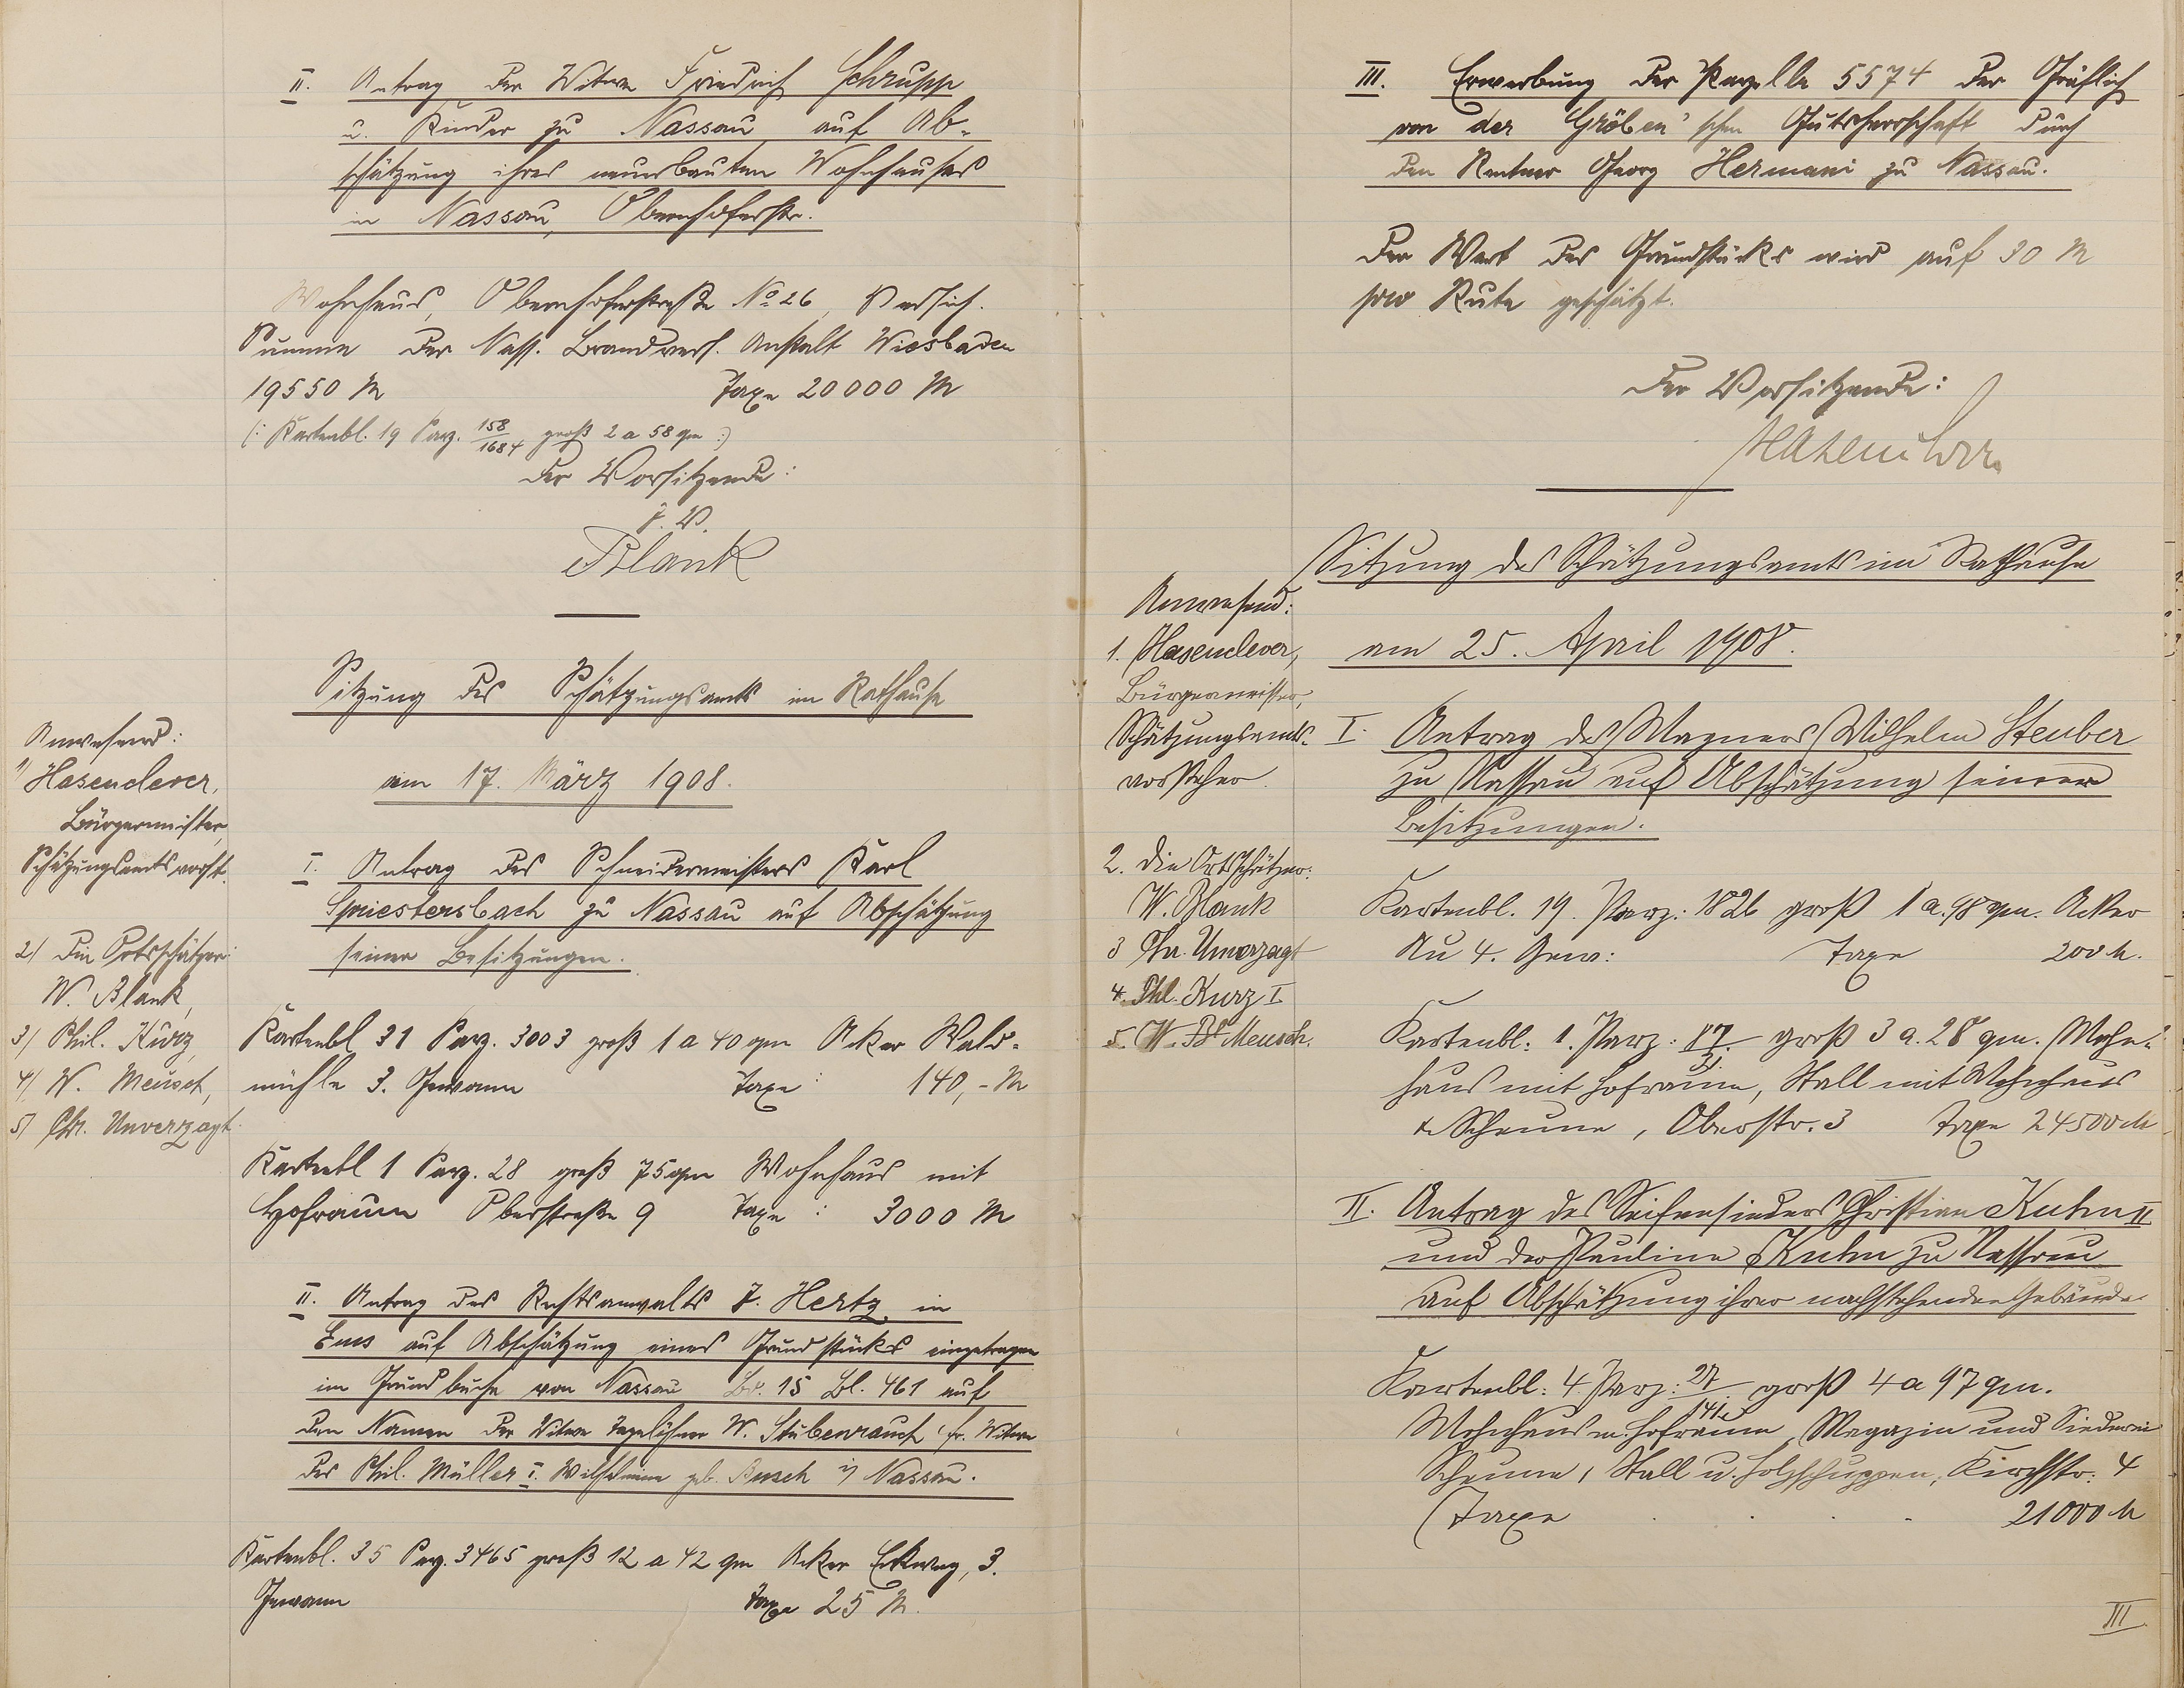 II. Antrag der Witwe Friedrich Schrupp
u. Kinder zu Nassau auf Ab-
schätzung ihres neuerbauten Wohnhauses
in Nassau, Obernhoferstr.
Wohnhaus, Obernhoferstraße No 26, Versich.
Summe der Nass. Brandvers. Anstalt Wiesbaden
19550 M Taxe 20000 M
(: Kartenbl. 19 Parz. 158/1684 groß 2 a 58 qm :)
Der Vorsitzende:
J. V.
Blank
Sitzung des Schätzungsamts im Rathause
am 17. März 1908.
Anwesend:
1) Hasenclever,
Bürgermeister,
Schätzungsamtsvorst.
2) Die Ortsschätzer:
W. Blank,
3) Phil. Kurz,
4) W. Meusch,
5) Chr. Unverzagt.
I. Antrag des Schneidermeisters Karl
Spriestersbach zu Nassau auf Abschätzung
seiner Besitzungen.
Kartenbl 31 Parz. 3003 groß 1 a 40 qm Acker Wald-
mühle 3. Gewann Taxe: 140,- M
Kartenbl 1 Parz. 28 groß 75 qm Wohnhaus mit
Hofraum Oberstraße 9 Taxe: 3000 M
II. Antrag des Rechtsanwalts J. Hertz in
Ems auf Abschätzung eines Grundstücks eingetragen
im Grundbuche von Nassau Bd. 15 Bl. 461 auf
den Namen der Witwe Tagelöhner W. Stubenrauch, fr. Witwe
des Phil. Müller I. Wilhelmine geb. Busch in Nassau.
Kartenbl. 35 Parz. 3465 groß 12 a 42 qm Acker 3.
Gewann Taxe 25 M.
III. Erwerbung der Parzelle 5574 der Gräflich
von der Gröben'schen Gutsherrschaft durch
den Rentner Georg Hermani zu Nassau.
Der Wert des Grundstücks wird auf 30 M
pro Rute geschätzt.
Der Vorsitzende:
Hasenclever
Sitzung des Schätzungsamts im Rathause
am 25. April 1908.
Anwesend:
1. Hasenclever,
Bürgermeister,
Schätzungsamts-
vorsteher.
2. Die Ortsschätzer:
W. Blank
3 Chr. Unverzagt
4. Phl. Kurz I
5. W. Meusch.
I. Antrag des Wagners Wilhelm Steuber
zu Nassau auf Abschätzung seiner
Besitzungen.
Kartenbl. 19. Parz: 1826 groß 1 a. 98 qm. Acker
Au 4. Gew: Taxe 200 M.
Kartenbl: 1. Parz: groß 3 a. 28 qm. Wohn-
haus mit Hofraum, Stall mit Wohnhaus
u. Scheune, Oberstr. 3 Taxe 24500 M
II. Antrag des Seifensieders Christian Kuhn II
und der Pauline Kuhn zu Nassau
auf Abschätzung ihrer nachstehenden Gebäude
Kartenbl: 4. Parz: 27/141 groß 4 a 97 qm.
Wohnhaus m. Hofraum, Magazin und Siederei
Scheune, Stall u. Holzschuppen, Kirchstr. 4
Taxe . . . . 21000 M
III